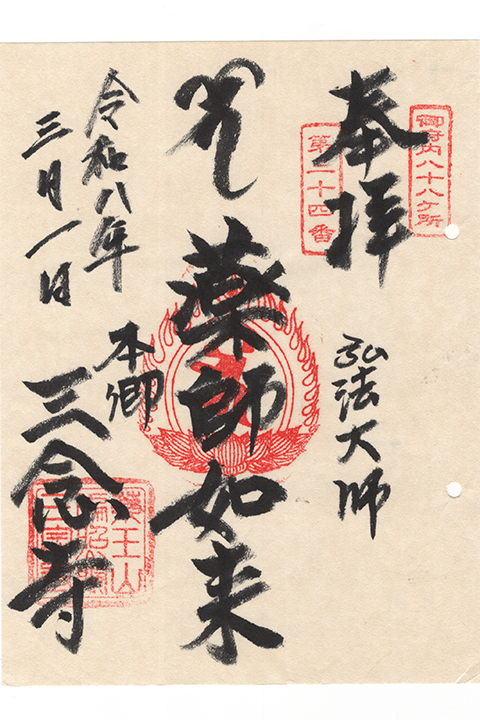 御府内八十八ケ所
奉拝
第二十四番
弘法大師
薬師如来
本郷
三念寺
令和八年
三月一日